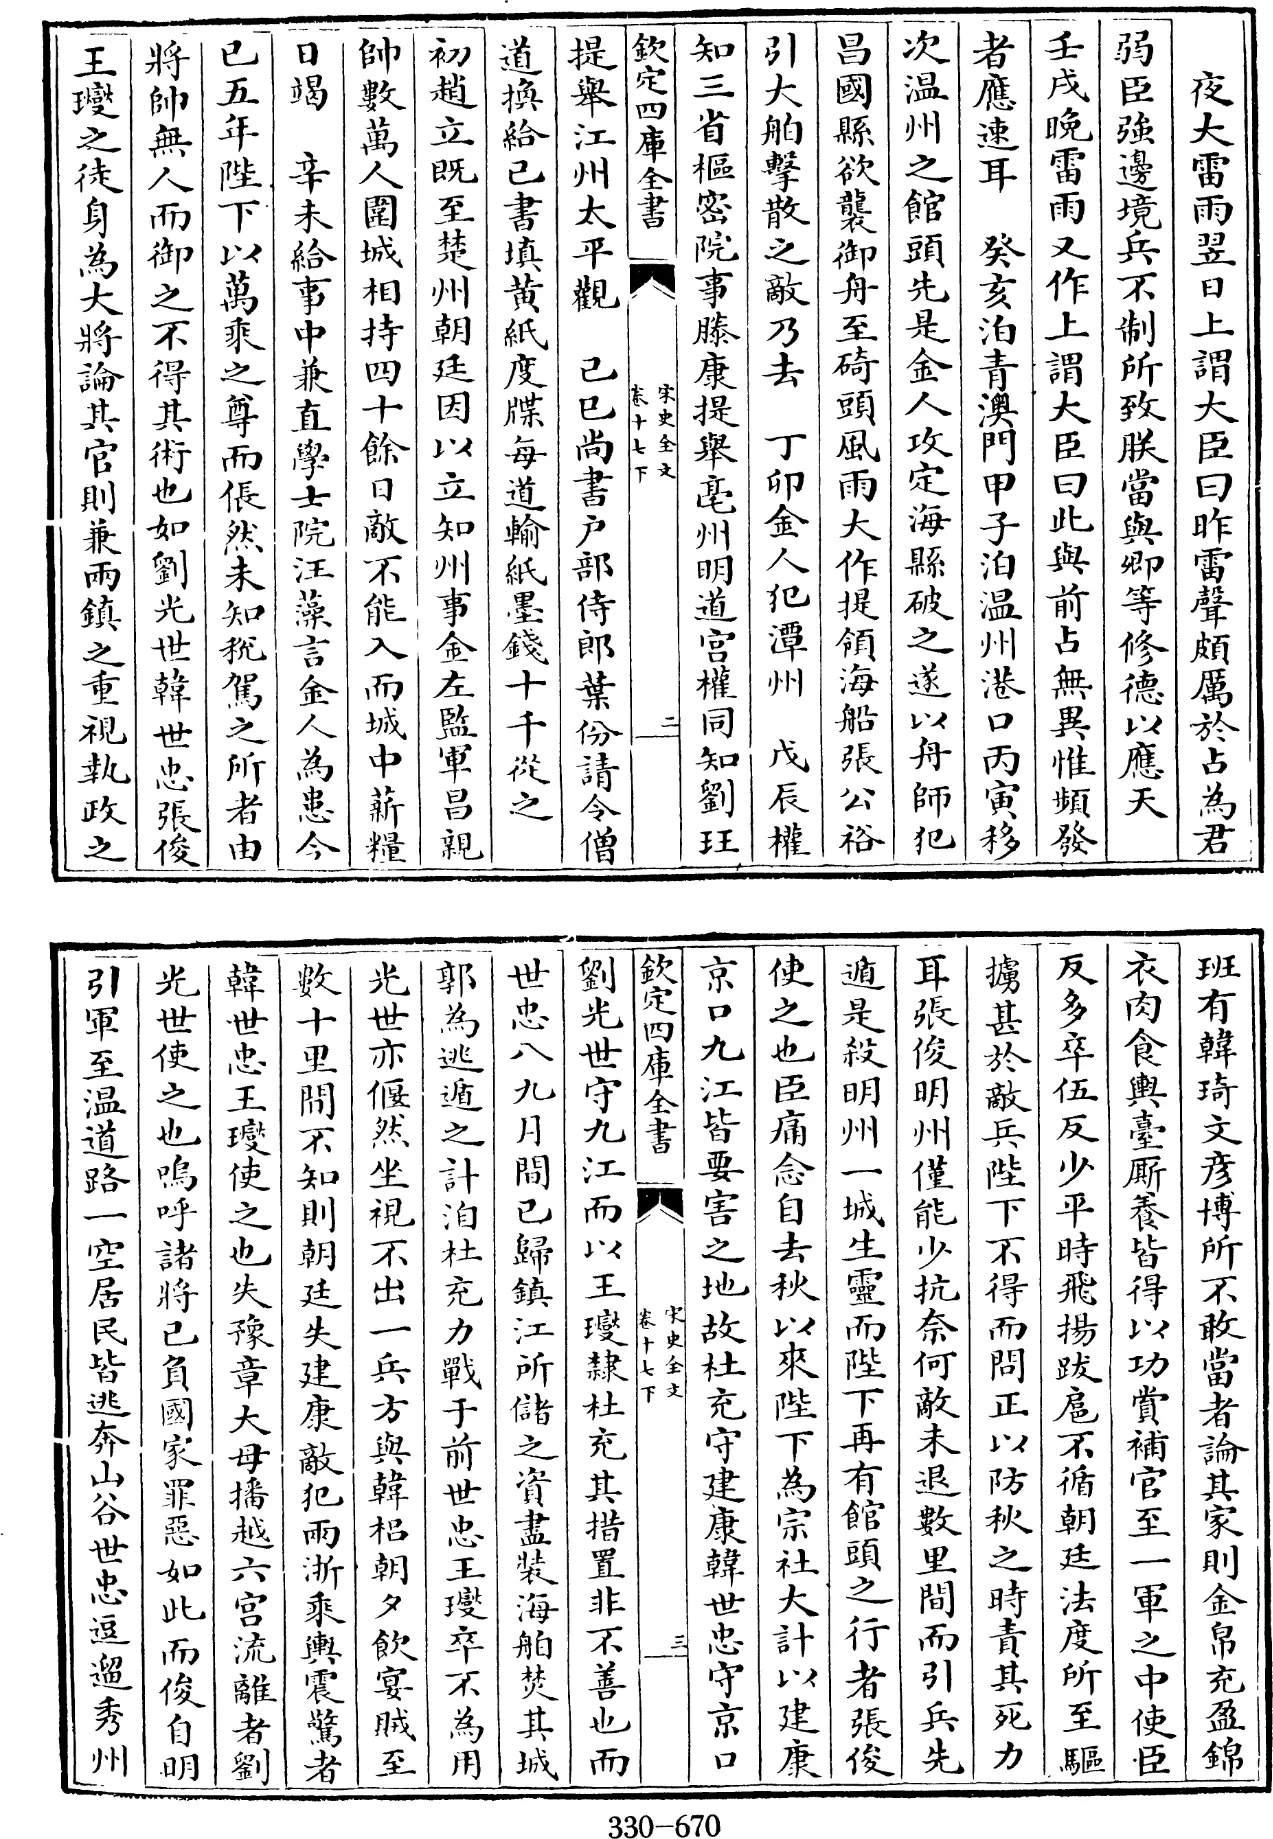 夜大雷雨翌日上謂大臣曰昨雷聲頗厲於占為君
弱臣強邊境兵不制所致朕當與卿等修德以應天
壬戌晚雷雨又作上謂大臣曰此與前占無異惟頻發
者應速耳　癸亥泊青澳門甲子泊温州港口丙寅移
次温州之館頭先是金人攻定海縣破之遂以舟師犯
昌國縣欲襲御舟至碕頭風雨大作提領海船張公裕
引大舶擊散之敵乃去　丁卯金人犯潭州　戊辰權
知三省樞密院事滕康提舉亳州明道宫權同知劉珏
欽定四庫全書
宋史全文
卷十七下
二
提舉江州太平觀　己巳尚書户部侍郎葉份請令僧
道換給已書填黄紙度牒每道輸紙墨錢十千從之
初趙立既至楚州朝廷因以立知州事金左監軍昌親
帥數萬人圍城相持四十餘日敵不能入而城中薪糧
日竭　辛未給事中兼直學士院汪藻言金人為患今
已五年陛下以萬乘之尊而倀然未知稅駕之所者由
將帥無人而御之不得其術也如劉光世韓世忠張俊
王𤫉之徒身為大將論其官則兼兩鎮之重視執政之
班有韓琦文彦博所不敢當者論其家則金帛充盈錦
衣肉食輿臺厮養皆得以功賞補官至一軍之中使臣
反多卒伍反少平時飛揚跋扈不循朝廷法度所至驅
擄甚於敵兵陛下不得而問正以防秋之時責其死力
耳張俊明州僅能少抗奈何敵未退數里間而引兵先
遁是殺明州一城生靈而陛下再有館頭之行者張俊
使之也臣痛念自去秋以來陛下為宗社大計以建康
京口九江皆要害之地故杜充守建康韓世忠守京口
欽定四庫全書
宋史全文
卷十七下
三
劉光世守九江而以王𤫉隸杜充其措置非不善也而
世忠八九月間已歸鎮江所儲之資盡裝海舶焚其城
郭為逃遁之計洎杜充力戰于前世忠王𤫉卒不為用
光世亦偃然坐視不出一兵方與韓梠朝夕飲宴賊至
數十里間不知則朝廷失建康敵犯兩浙乘輿震驚者
韓世忠王𤫉使之也失豫章大母播越六宫流離者劉
光世使之也嗚呼諸將已負國家罪惡如此而俊自明
引軍至温道路一空居民皆逃奔山谷世忠逗遛秀州
330-670